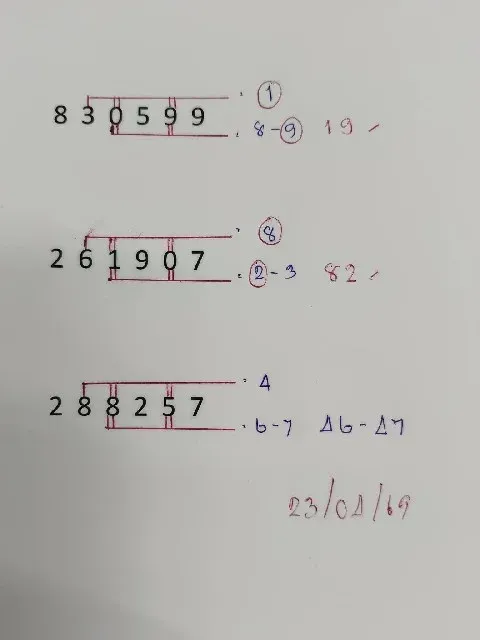 1
830599
8-9 19
8
261907
2-3 82
4
288257
6-7 46-47
23/04/69